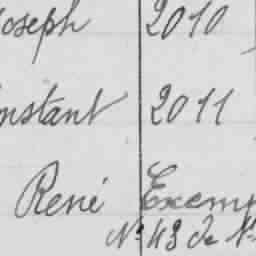 Joseph 2010
Constant 2011
René Exemp
N° 43 de N°